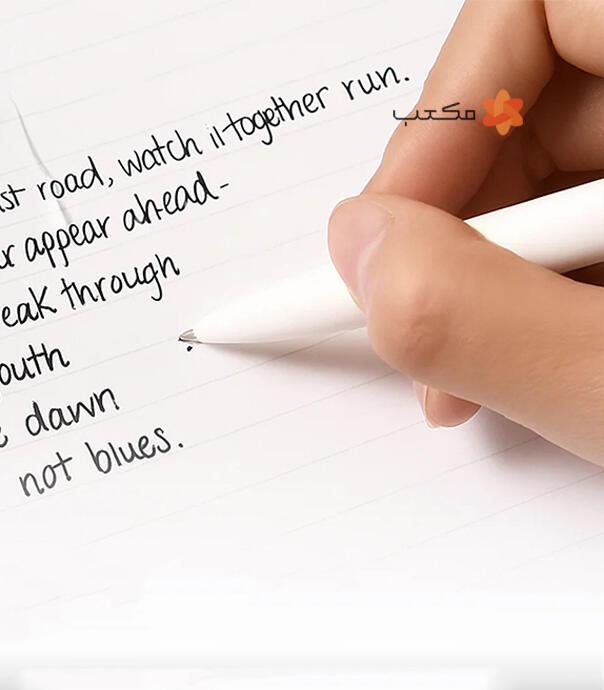 st road, watch it together run.
r appear ahead-
eak through
outh
e dawn
not blues.
مکتب